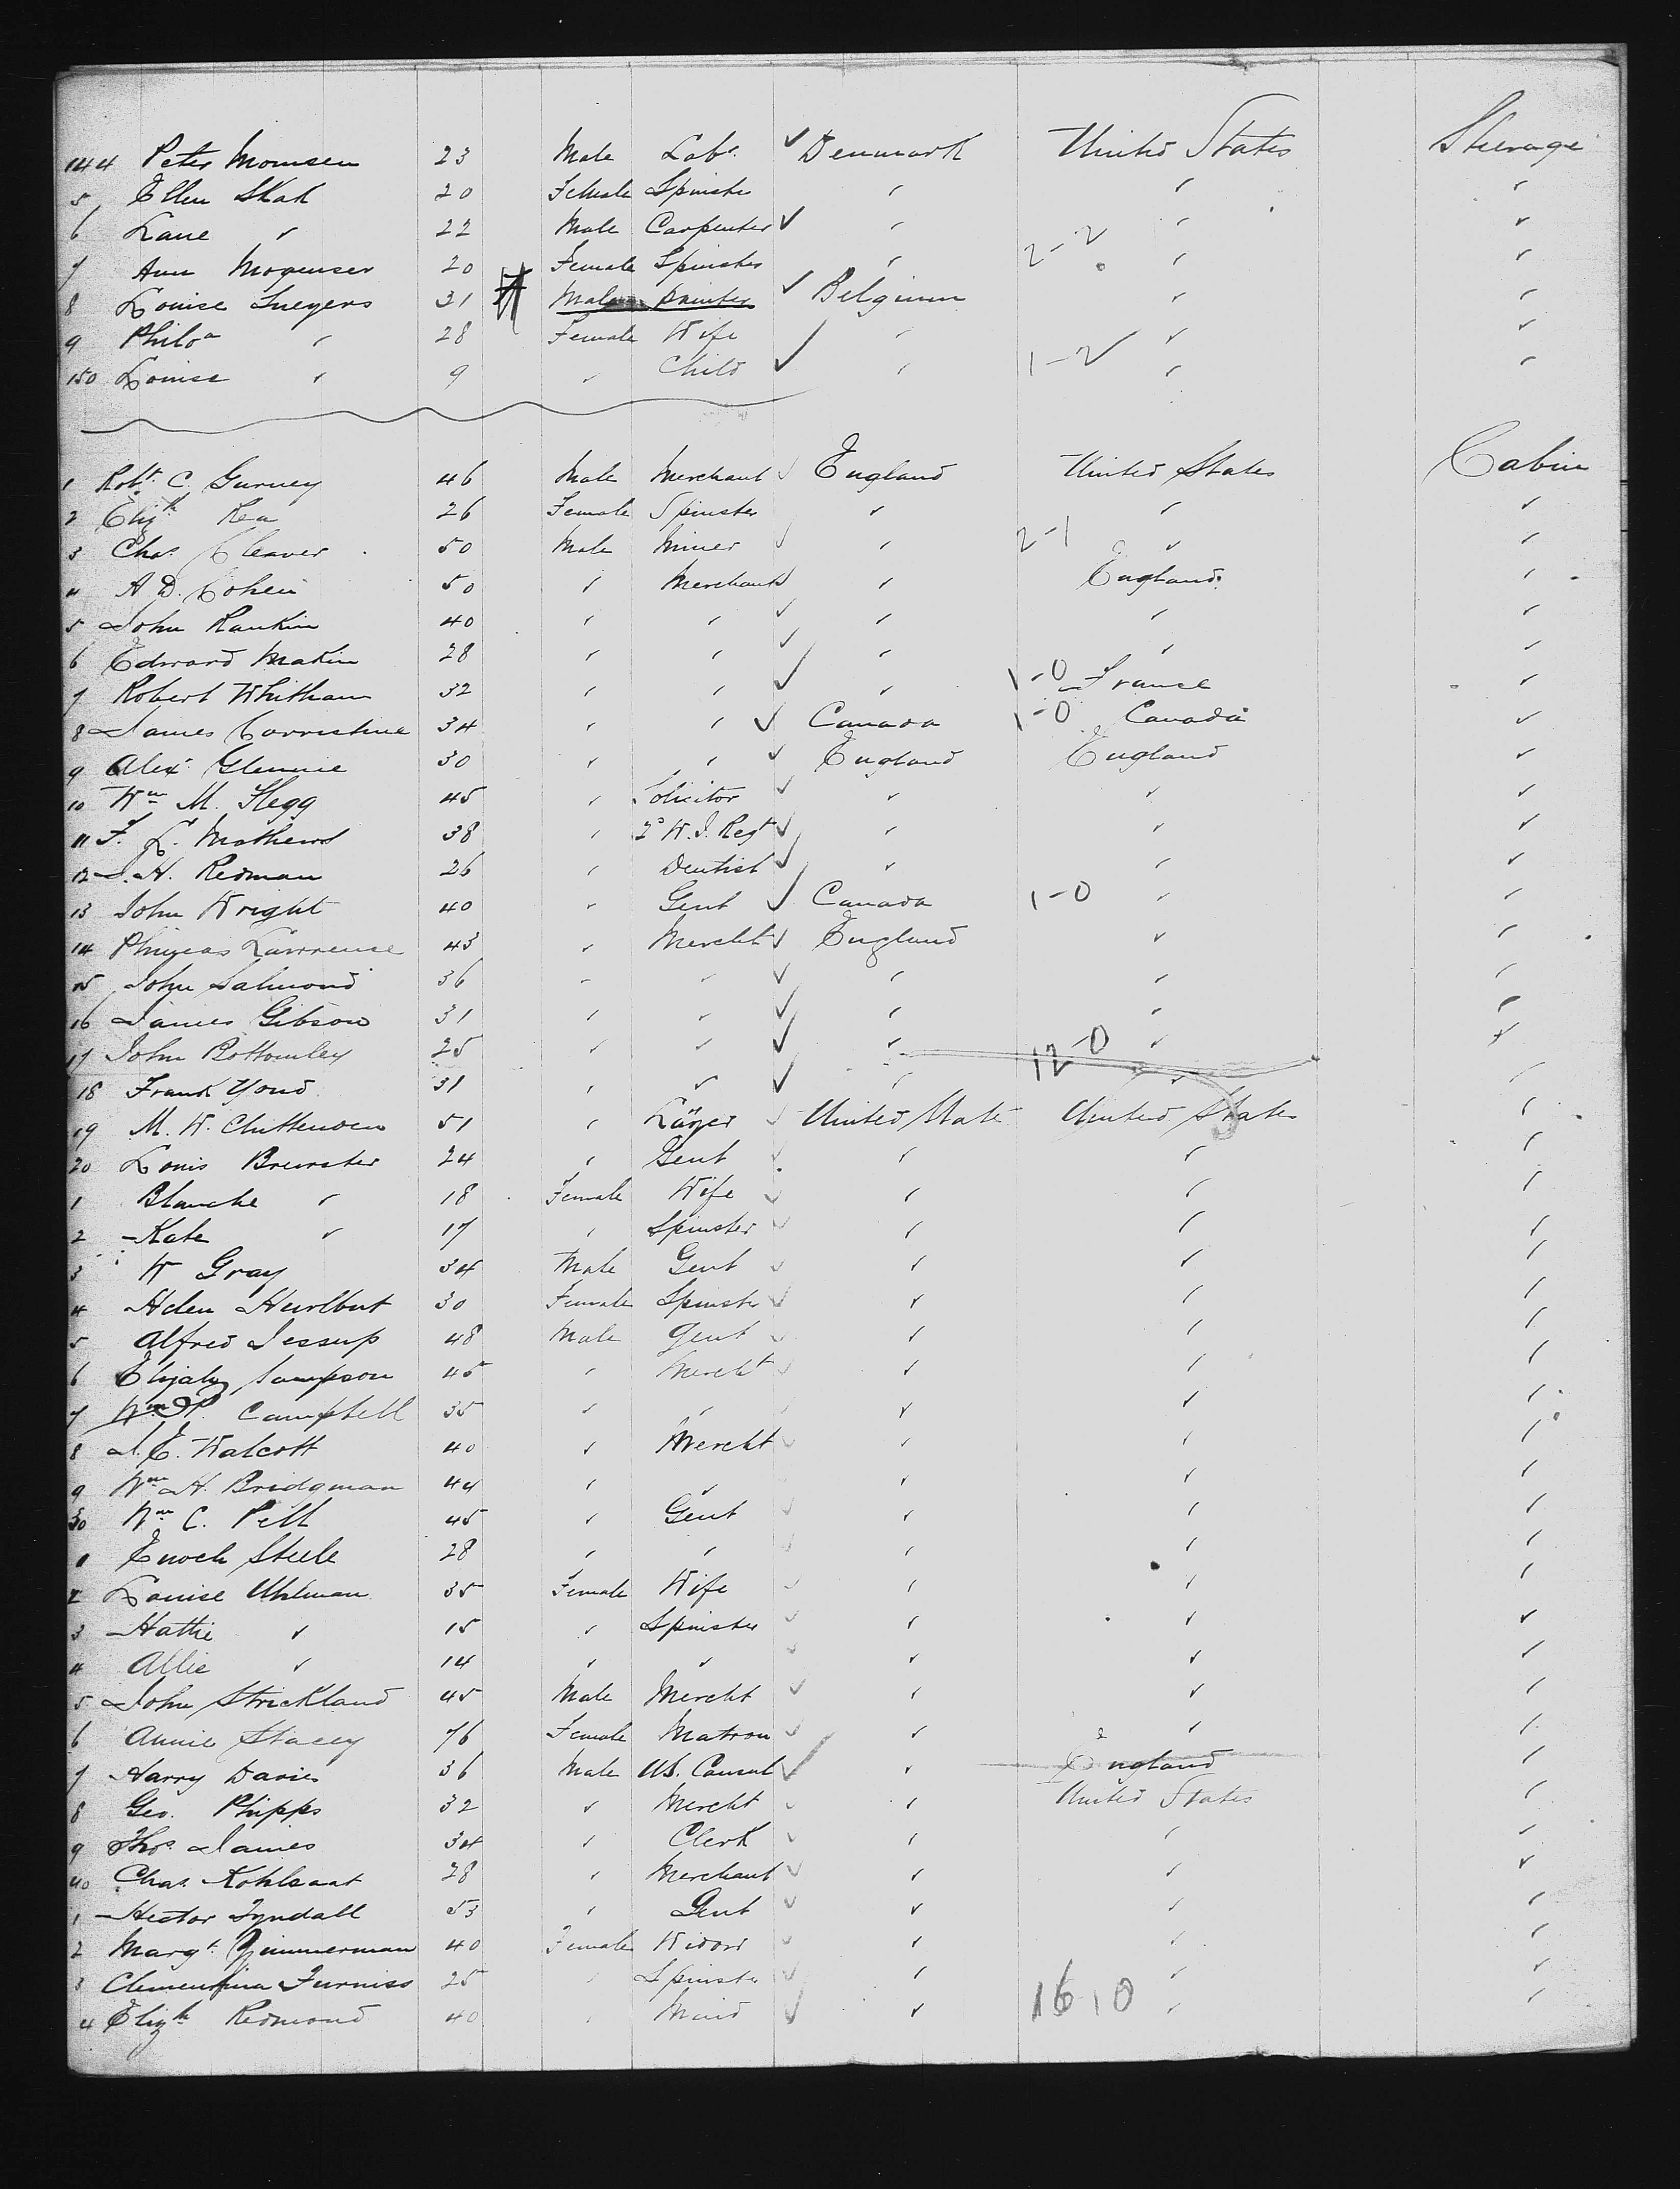 144 Peter Momsen 23 Male Labr. ✓ Denmark United States Steerage
5 Ellen Skak 20 Female Spinster " " "
6 Lane " 22 Male Carpenter ✓ " " "
7 Ann Mogenser 20 Female Spinster " 2-2 " "
8 Louise Sneyers 31 Male painter ✓ Belgium " "
9 Philoa " 28 Female Wife " " "
150 Louise " 9 " Child ✓ " 1-2 " "
1 Robt. C. Gurney 46 Male Merchant ✓ England United States Cabin
2 Elizth Rea 26 Female Spinster " " "
3 Chas. Cleaver 50 Male Miner ✓ " 2-1 " "
4 A D. Cohen 50 " Merchant ✓ " England "
5 John Rankin 40 " " ✓ " " "
6 Edward Makin 28 " " ✓ " " "
7 Robert Whitham 32 " " ✓ " 1-0 France "
8 James Corristine 34 " " ✓ Canada 1-0 Canada "
9 Alexr Glennie 30 " " ✓ England England "
10 Wm M. Flegg 45 " Solicitor ✓ " " "
11 F. L. Mathews 38 " 2d W. I. Regt ✓ " " "
12 J. H. Redman 26 " Dentist ✓ " " "
13 John Wright 40 " Gent ✓ Canada 1-0 " "
14 Phineas Lawrence 43 " Mercht ✓ England " "
15 John Salmond 36 " " ✓ " " "
16 James Gibson 31 " " ✓ " " "
17 John Bottomley 25 " " ✓ " 12-0 " "
18 Frank Yond 31 " " ✓ " " "
19 M. W. Chittenden 51 " ✓ United State United States "
20 Louis Brewster 24 " Gent ✓ " " "
1 Blanche " 18 Female Wife ✓ " " "
2 Kate " 17 " Spinster ✓ " " "
3 W Gray 34 Male Gent ✓ " " "
4 Helen Hurlbut 30 Female Spinster ✓ " " "
5 Alfred Jessup 48 Male Gent ✓ " " "
6 Elijah Sampson 45 " Mercht ✓ " " "
7 Wm P. Campbell 35 " " " " "
8 J. E. Walcott 40 " Mercht ✓ " " "
9 Wm H. Bridgman 44 " " " " "
30 Wm C. Pell 45 " Gent ✓ " " "
1 Enoch Steele 28 " " ✓ " " "
2 Louise Uhlman 35 Female Wife ✓ " " "
3 Hattie " 15 " Spinster ✓ " " "
4 Allie " 14 " " ✓ " " "
5 John Strickland 45 Male Mercht ✓ " " "
6 Annie Stacey 76 Female Matron ✓ " " "
7 Harry Davies 36 Male U.S. Consul ✓ " England "
8 Geo. Phipps 32 " Mercht ✓ " United States "
9 Thos. James 34 " Clerk ✓ " " "
40 Chas. Kohlsaat 28 " Merchant ✓ " " "
1 Hector Tyndall 53 " Gent ✓ " " "
2 Margt. Zimmerman 40 Female Widow ✓ " " "
3 Clementina Furniss 25 " Spinster ✓ " " "
4 Elizth Redmond 40 " Maid ✓ " 16 10 " "